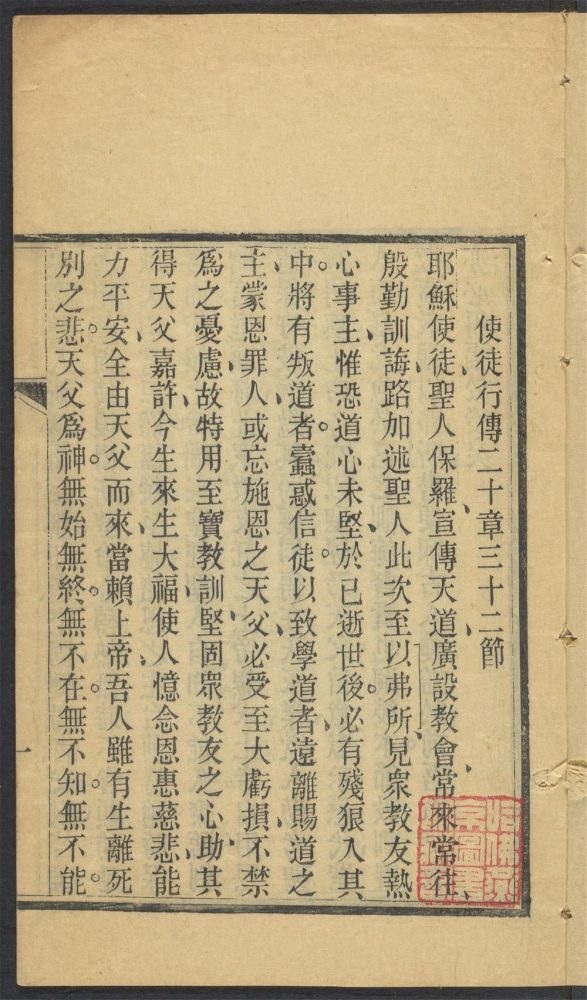 使徒行傳二十章三十二節
耶穌使徒聖人保羅、宣傳天道、廣設教會、常來常往、
殷勤訓誨、路加述聖人此次至以弗所、見眾教友熱
心事主、惟恐道心未堅、於已逝世後。必有殘狼入其
中。將有叛道者。蠧惑信徒。以致學道者、遠離賜道之
主、蒙恩罪人、或忘施恩之天父、必受至大虧損、不禁
爲之憂慮、故特用至寶教訓、堅固眾教友之心、助其
得天父嘉許、今生來生大福、使人憶念恩惠慈悲、能
力平安、全由天父而來、當賴上帝、吾人雖有生離死
別之悲。天父爲神。無始無終。無不在。無不知。無不能。
一